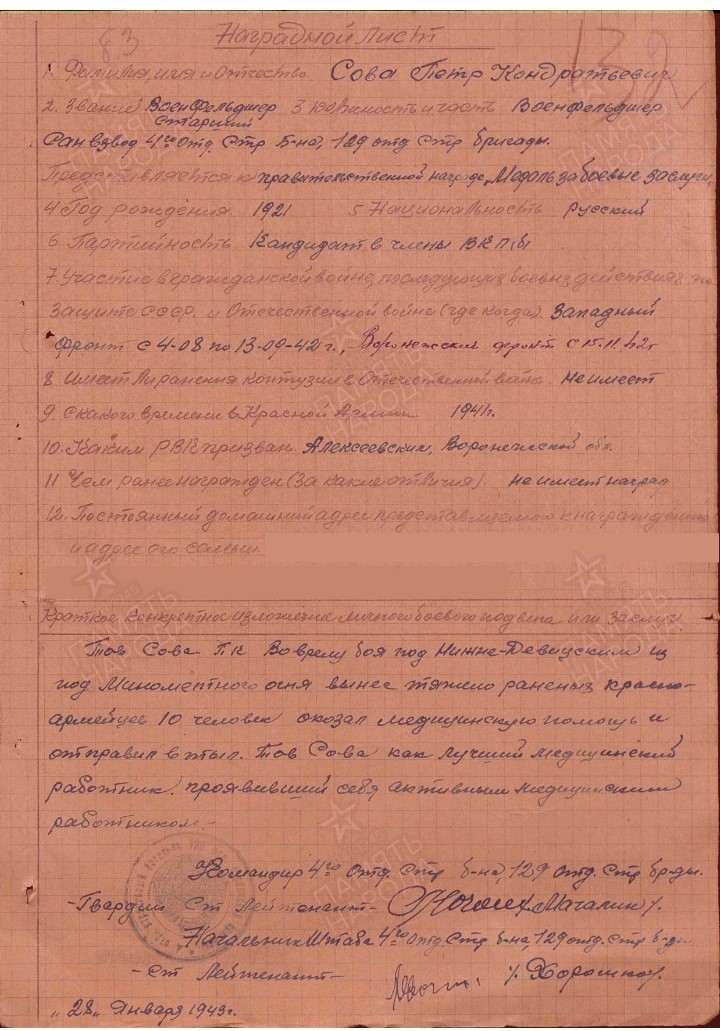 83
132
Наградной лист
1. Фамилия, имя и Отчество. Сова Петр Кондратьевич
2. Звание Военфельдшер 3 должность и часть Военфельдшер
Старший
Сан взвод 4го Отд. Стр Б-на, 129 отд Стр бригады.
Представляется к правительственной награде „Медаль за боевые заслуги"
4. Год рождения 1921 5 Национальность русский
6. Партийность Кандидат в члены ВКП(б)
7. Участие в гражданской войне, последующих боевых действиях по
защите СССР. и Отечественной войне (где когда). Западный
фронт с 4-08 по 13-09-42 г., Воронежский фронт с 15.11.42г
8. Имеет ли ранения контузии в Отечественной войне. Не имеет
9. С какого времени в Красной Армии 1941г.
10. Каким РВК призван. Алексеевским, Воронежской обл.
11 Чем ранее награжден (за какие отличия). не имеет наград
12. Постоянный домашний адрес представляемого к награждению
и адрес его семьи.
Краткое конкретное изложение личного боевого подвига или заслуг
Тов Сова П.К Во время боя под Нижне-Девицким из
под Минометного огня вынес тяжело раненых красно-
армейцев 10 человек оказал медицинскую помощь и
отправил в тыл. Тов Сова как лучший медицинский
работник. проявивший себя активным медицинским
работником.-
Командир 4го Отд. Стр б-на, 129 отд. Стр бр-ды.
-Гвардии Ст Лейтенант- /Мачалин/.
Начальник Штаба 4го Отд Стр б-на, 129 отд. стр б-ды
-Ст Лейтенант- /Хорошко/.
„28„ Января 1943г.
ПАМЯТЬ НАРОДА